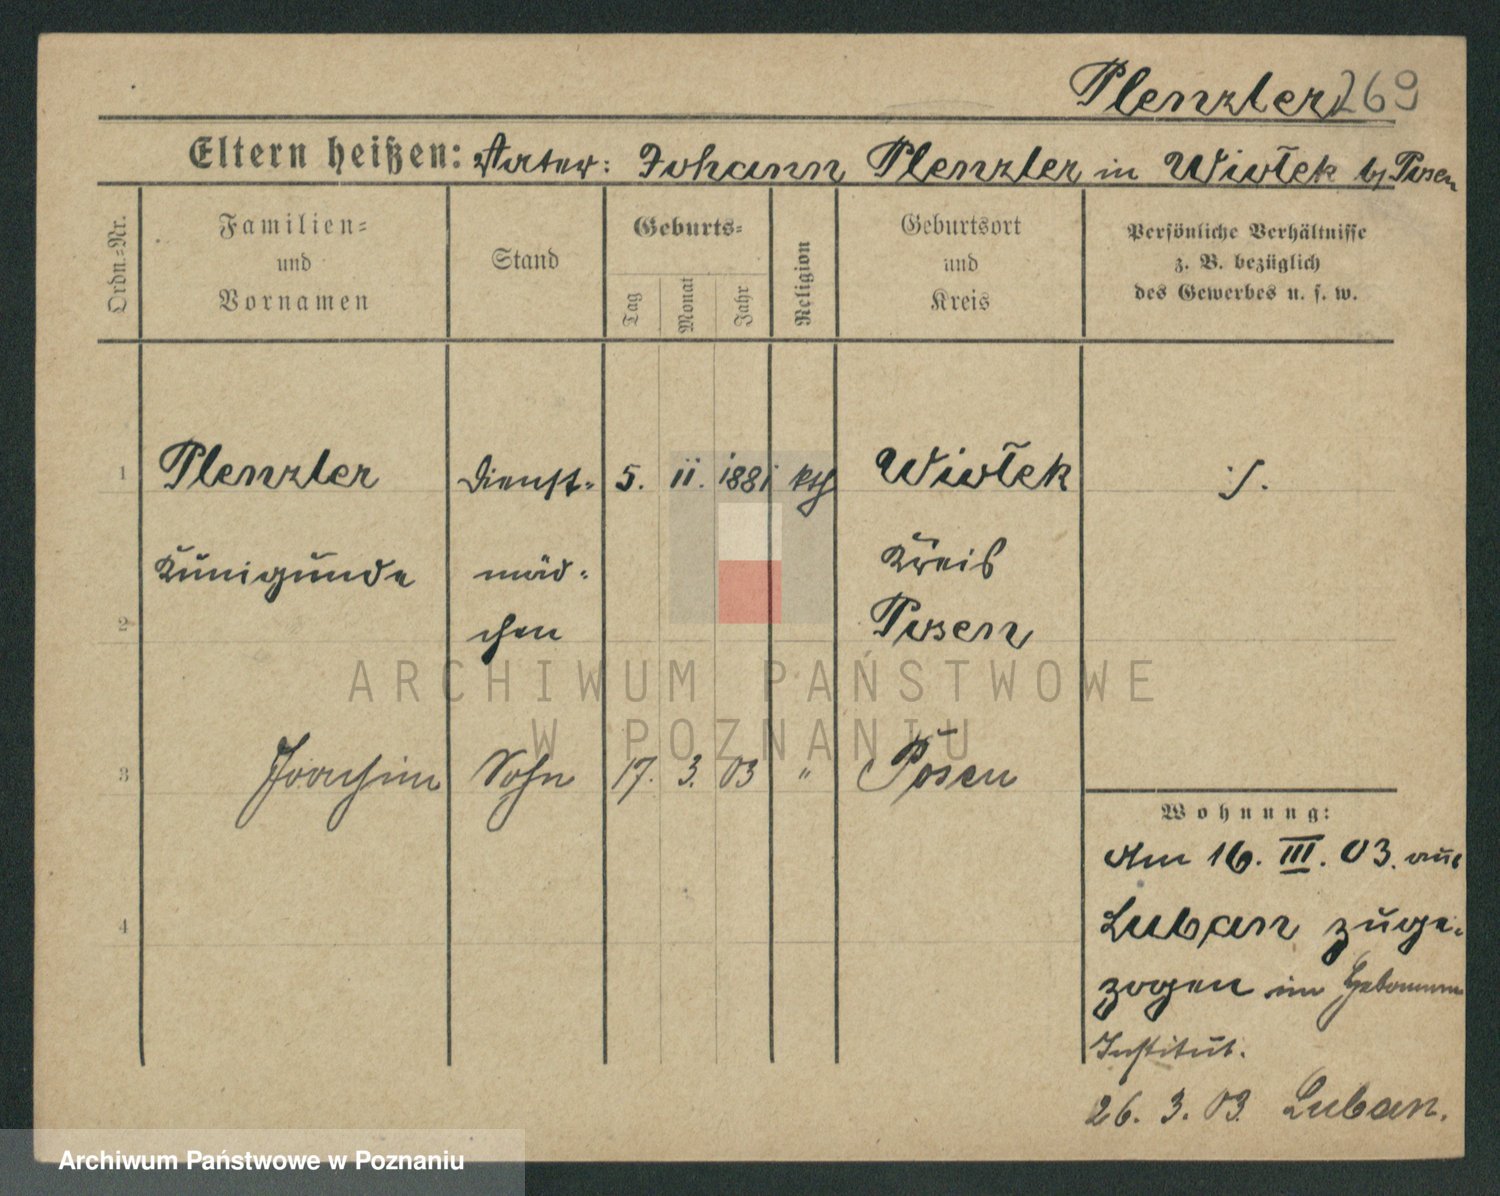 Plenzler 269
Eltern heißen: Vater: Johann Plenzler in Wiotek b/ Posen
Ordn.-Nr.
Familien-
und
Vornamen
Stand
Geburts-
Tag
Monat
Jahr
Religion
Geburtsort
und
Kreis
Persönliche Verhältnisse
z. B. bezüglich
des Gewerbes u. s. w.
1 Plenzler Dienst- 5. 11. 1881 kth Wiotek ./.
Kunigunde mäd- Kreis
2 chen Posen
ARCHIWUM PAŃSTWOWE
W POZNANIU
3 Joachim Sohn 17. 3. 03 " Posen
4
Wohnung:
Am 16. III. 03. aus
Luban zuge-
zogen im
Institut.
26. 3. 03 Luban.
Archiwum Państwowe w Poznaniu